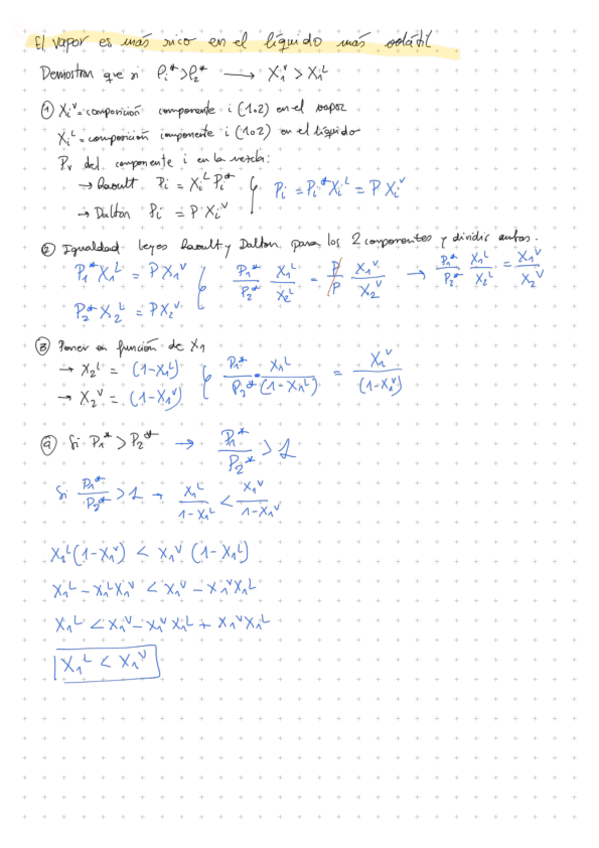 El vapor es más rico en el líquido más volátil
Demostrar que si P₁* > P₂* → X₁ᵛ > X₁ᴸ
① Xᵢᵛ = composición componente i (1o2) en el vapor
Xᵢᴸ = composición componente i (1o2) en el líquido
Pᵥ del componente i en la mezcla:
→ Raoult Pᵢ = Xᵢᴸ Pᵢ*
→ Dalton Pᵢ = P Xᵢᵛ
Pᵢ = Pᵢ* Xᵢᴸ = P Xᵢᵛ
② Igualdad leyes Raoult y Dalton para los 2 componentes y dividir ambas.
P₁* X₁ᴸ = P X₁ᵛ
P₂* X₂ᴸ = P X₂ᵛ
P₁*/P₂* X₁ᴸ/X₂ᴸ = P/P X₁ᵛ/X₂ᵛ → P₁*/P₂* X₁ᴸ/X₂ᴸ = X₁ᵛ/X₂ᵛ
③ Poner en función de X₁
→ X₂ᴸ = (1-X₁ᴸ)
→ X₂ᵛ = (1-X₁ᵛ)
P₁*/P₂* · X₁ᴸ/(1-X₁ᴸ) = X₁ᵛ/(1-X₁ᵛ)
④ Si P₁* > P₂* → P₁*/P₂* > 1
Si P₁*/P₂* > 1 → X₁ᴸ/1-X₁ᴸ < X₁ᵛ/1-X₁ᵛ
X₁ᴸ (1-X₁ᵛ) < X₁ᵛ (1-X₁ᴸ)
X₁ᴸ - X₁ᴸX₁ᵛ < X₁ᵛ - X₁ᵛX₁ᴸ
X₁ᴸ < X₁ᵛ - X₁ᵛX₁ᴸ + X₁ᵛX₁ᴸ
X₁ᴸ < X₁ᵛ